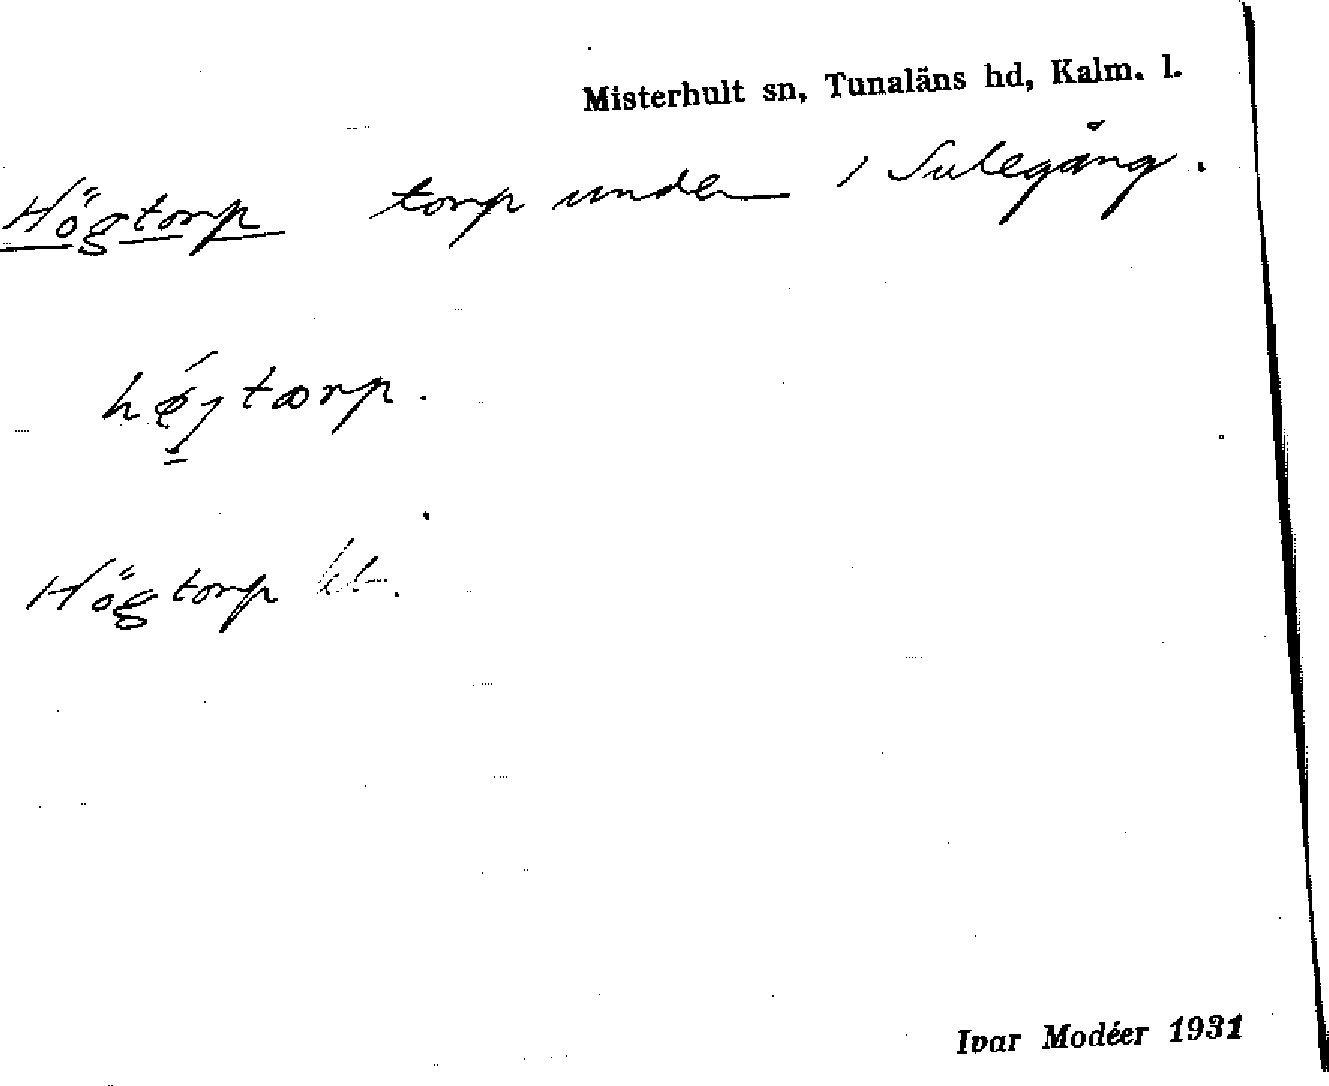 Misterhult sn, Tunaläns hd, Kalm. l.
Högtorp torp under 1 Sulegång.
høgtorp.
Högtorp
Ivar Modéer 1931